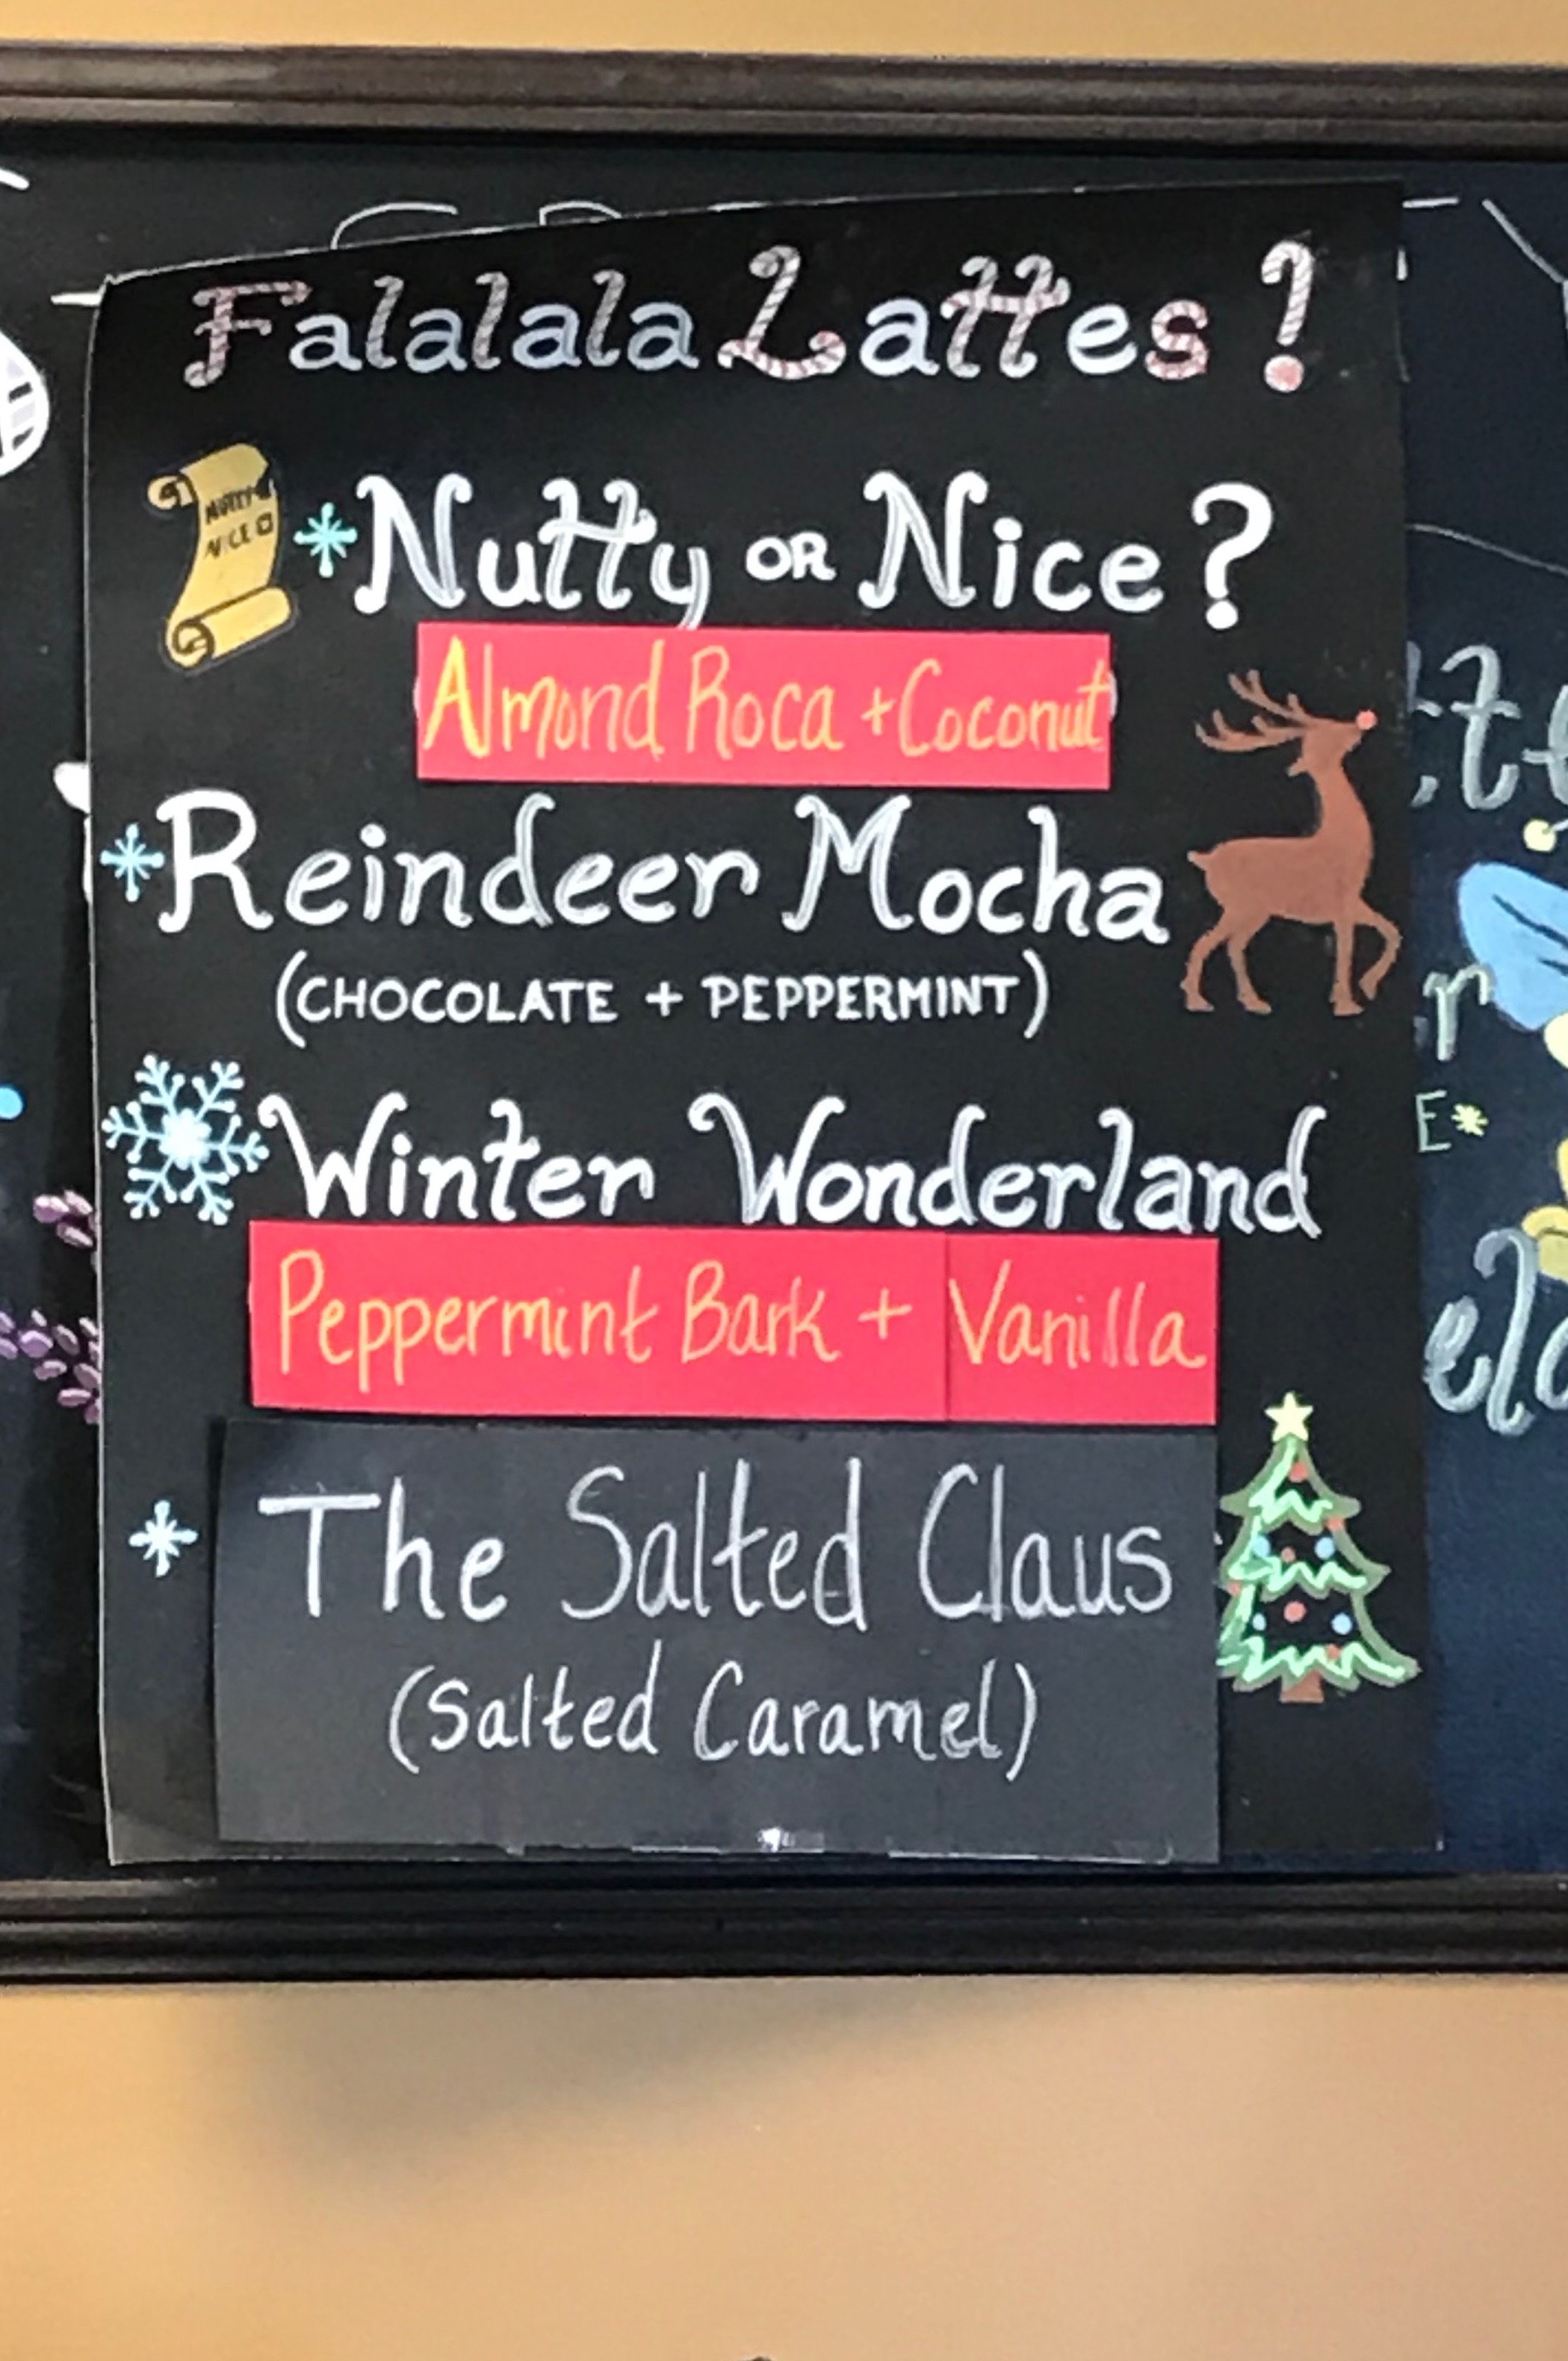 Falalala Lattes!
NUTTY
NICE
*Nutty OR Nice?
Almond Roca + Coconut
*Reindeer Mocha
(CHOCOLATE + PEPPERMINT)
Winter Wonderland
Peppermint Bark + Vanilla
* The Salted Claus
(Salted Caramel)
E*